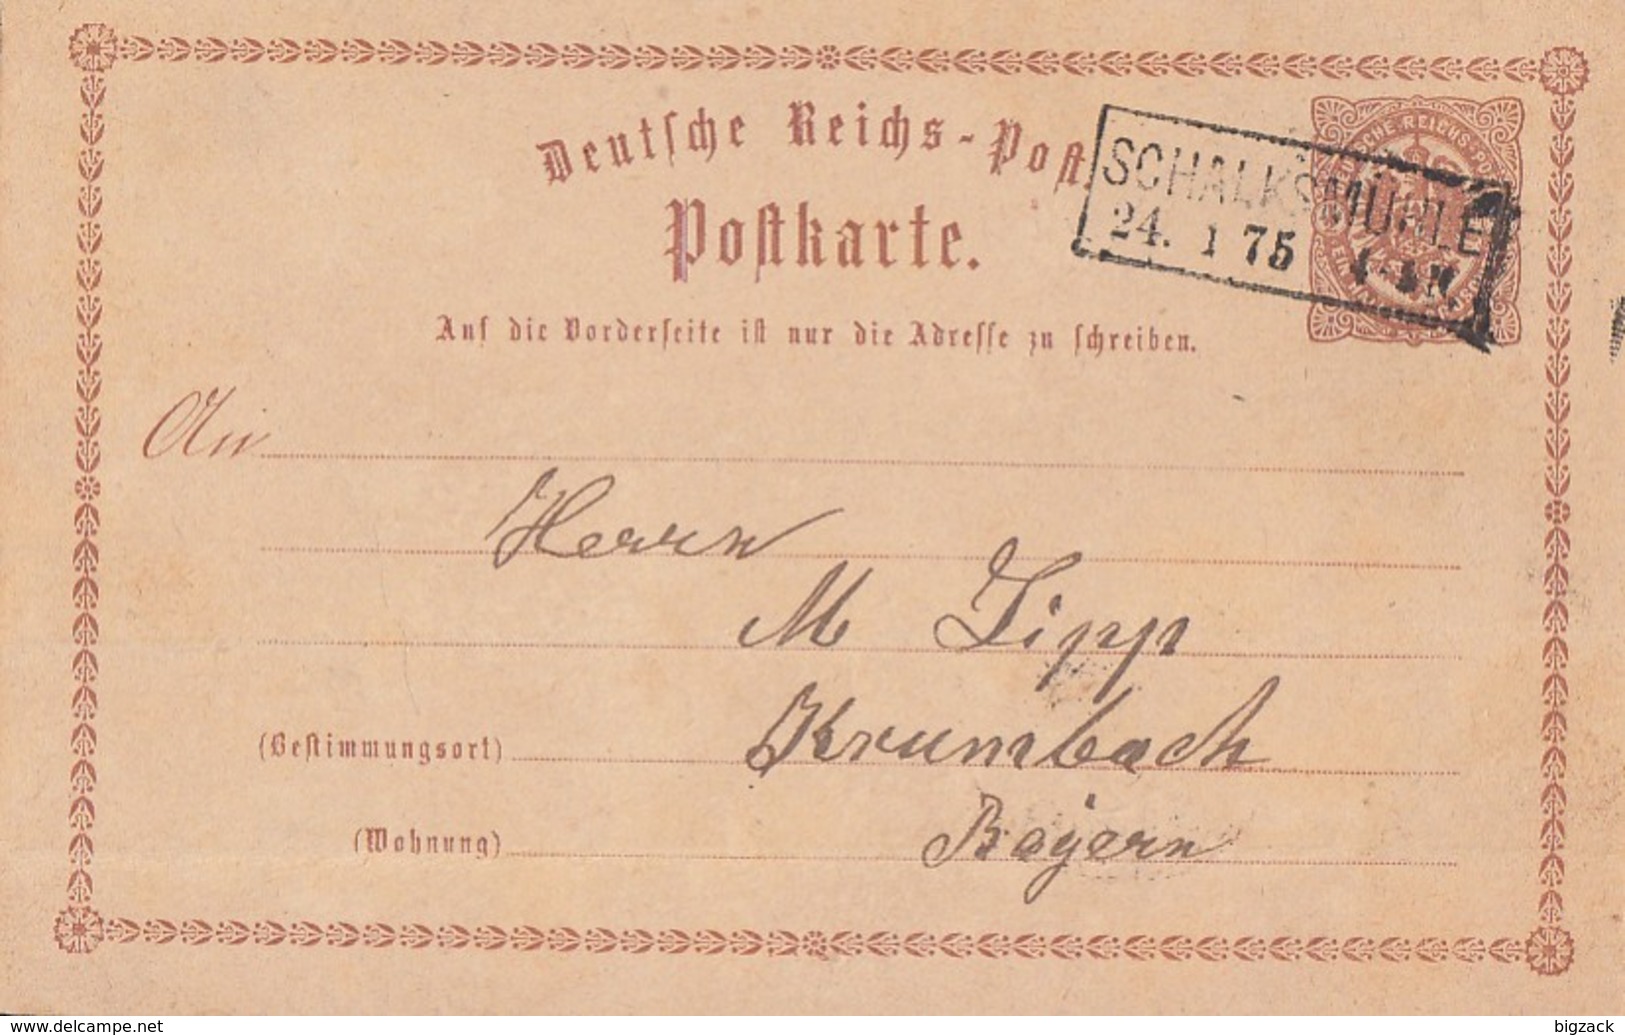 Deutsche Reichs-Post.
SCHALKSMÜHLE
24. 1 75
DEUTSCHE REICHS-POST
Postkarte.
Auf die Vorderseite ist nur die Adresse zu schreiben.
An
Herrn
M Lipp
Krumbach
(Bestimmungsort)
Bayern
(Wohnung)
www.delcampe.net
bigzack